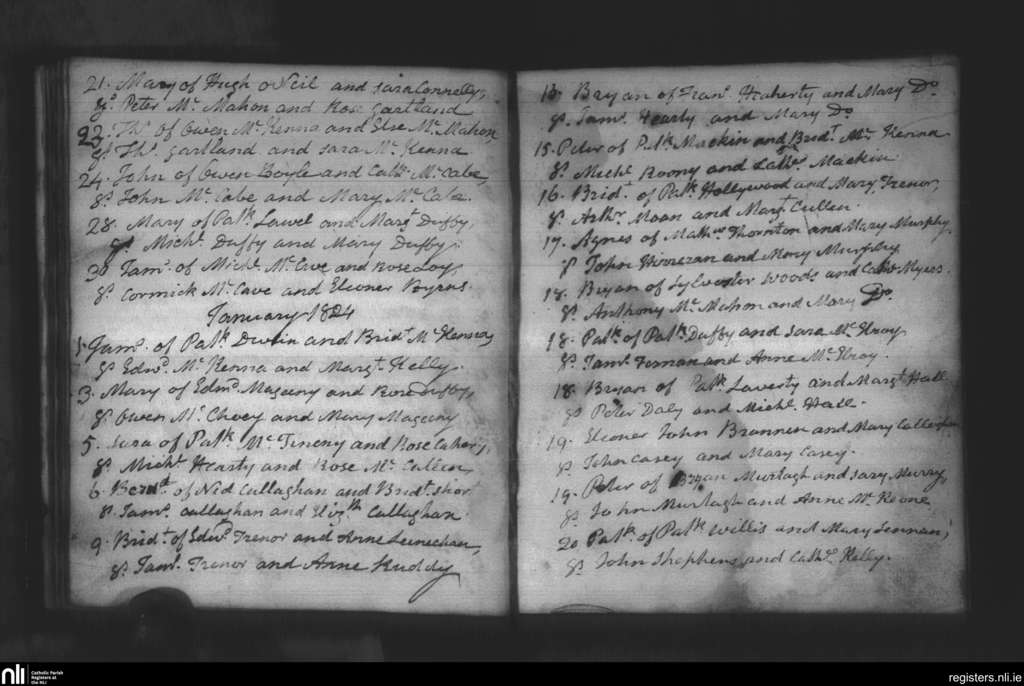 21. Mary of Hugh oNeil and Sara Connelly,
Ss. Peter Mc. Mahon and Rose Gartland
23. Ths. of Owen Mc. Kenna and Else Mc. Mahon,
Ss. Ths. Gartland and Sara Mc. Kenna
24. John of Owen Boyle and Cath. Mc. Cabe,
Ss. John Mc. Cabe and Mary Mc. Cabe
28. Mary of Patk. Lawel and Margt. Duffy,
Ss. Michl. Duffy and Mary Duffy.
30 Jams. of Michl. Mc. Cave and Rose Loy,
Ss. Cormick Mc. Cave and Eleoner Byrns
January 1824
1. Jams. of Patk. and Bridt. Mc Kenna
Ss Edwd. Mc. Kenna and Margt. Kelly.
3. Mary of Edmd. Mageeny and Rose Duffy,
Ss. Owen Mc. and Mary Mageeny
5. Sara of Patk. Mc. and Rose
Ss. Michl. Hearty and Rose Mc. Cullen
6. Bernd. of Ned Callaghan and Bridt. Short
Ss. Jams. Callaghan and Elizth. Callaghan.
9. Bridt. of Edwd. Trenor and Anne
Ss. Jams. Trenor and Anne Kuddy
13. Bryan of Frans. Heaherty and Mary Do.
Ss. Jams. Hearty and Mary Do.
15. Peter of Patk. Mackin and Bridt. Mc. Kenna
Ss. Michl. Roony and Mackin.
16. Bridt. of Patk. Hollywood and Mary Trenor,
Ss. Arthr. Moan and Margt. Cullen.
17. Agnes of Mathw. Thornton and Mary Murphy.
Ss John and Mary Murphy
17. Bryan of Sylvester Woods and Cathe. Myers.
Ss. Anthony Mc. Mahon and Mary Do.
18. Patk. of Patk. Duffy and Sara Mc. Elroy
Ss. Jams. and Anne Mc. Elroy.
18. Bryan of Patk. Laverty and Margt. Hall
Ss Peter Daly and Michl. Hall.
19. Eleoner John Brannen and Mary
Ss. John Casey and Mary Casey.
19. Peter of Bryan Murtagh and Sary Murry
Ss. John Murtagh and Anne Mc. Keone
20 Patk. of Patk. Willis and Mary Lennan,
Ss. John Shephens and Cathe. Kelly.
nli
Catholic Parish
Registers at
the NLI
registers.nli.ie